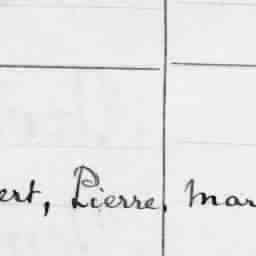 ert, Pierre, mar